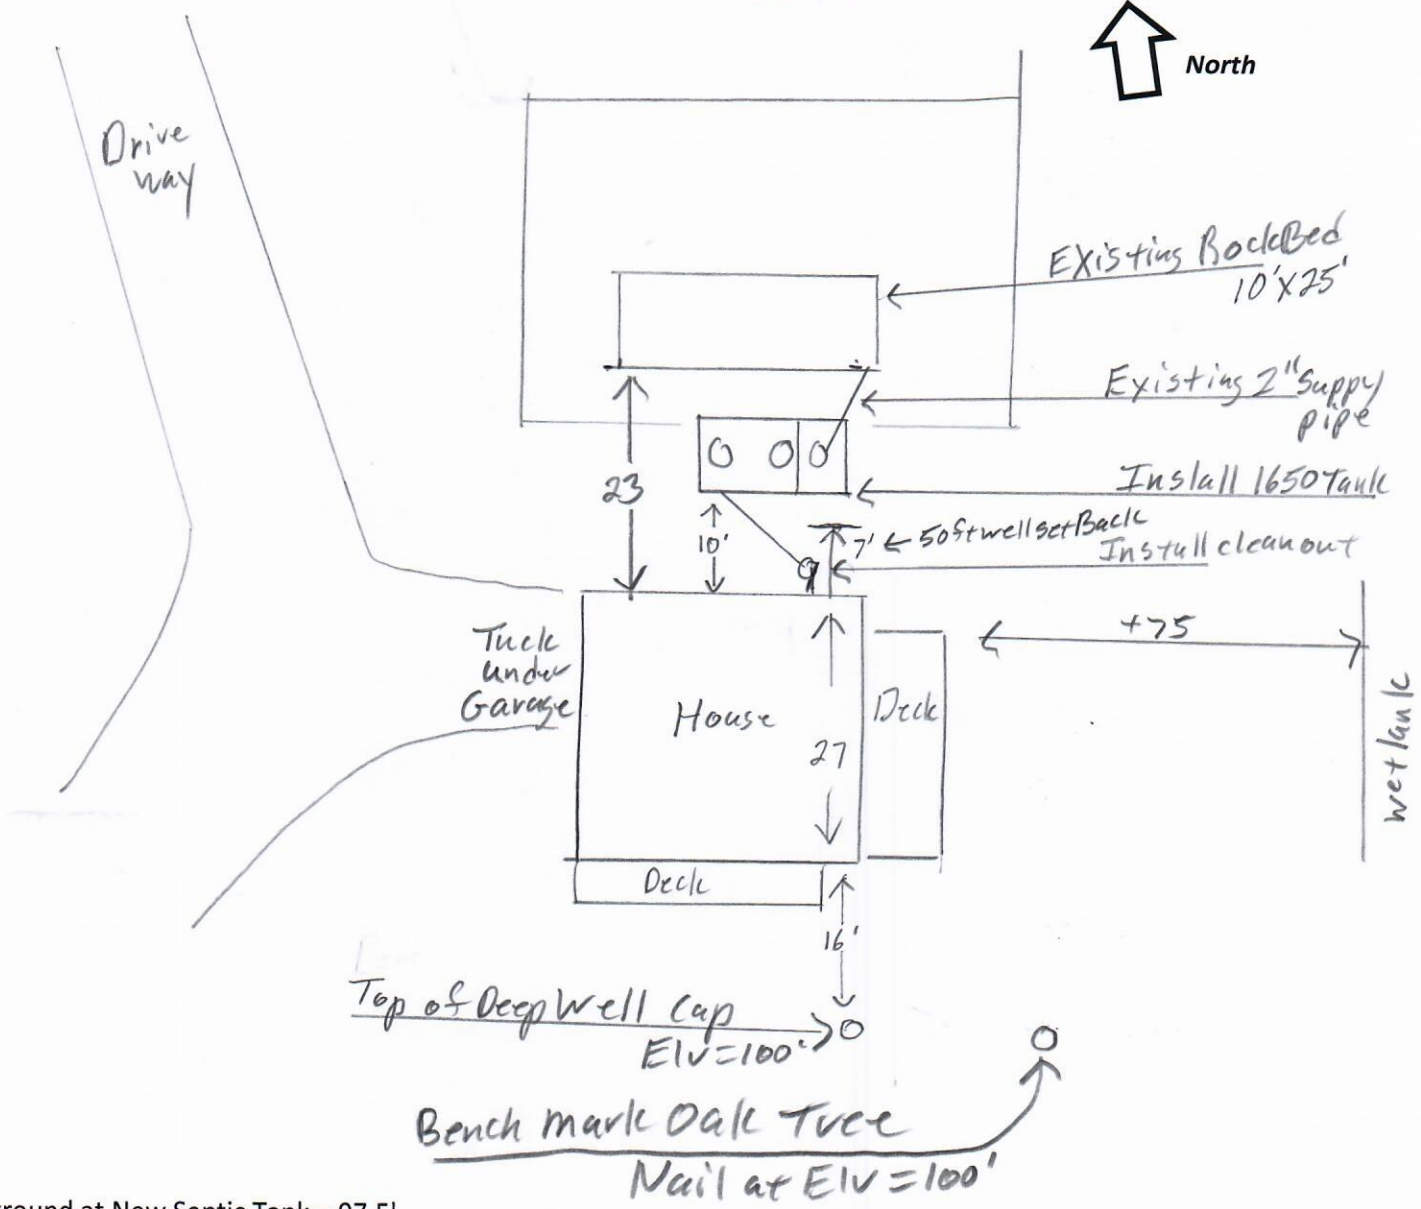 North
Drive
way
Existing RockBed
10'X25'
Existing 2" Supply
pipe
Install 1650 Tank
23
10'
7' ← 50ft well setBack
Install cleanout
+75
Tuck
under
Garage
House
Deck
27
wetlank
Deck
16'
Top of Deep Well Cap
Elv=100'
Bench mark Oak Tree
Nail at Elv=100'